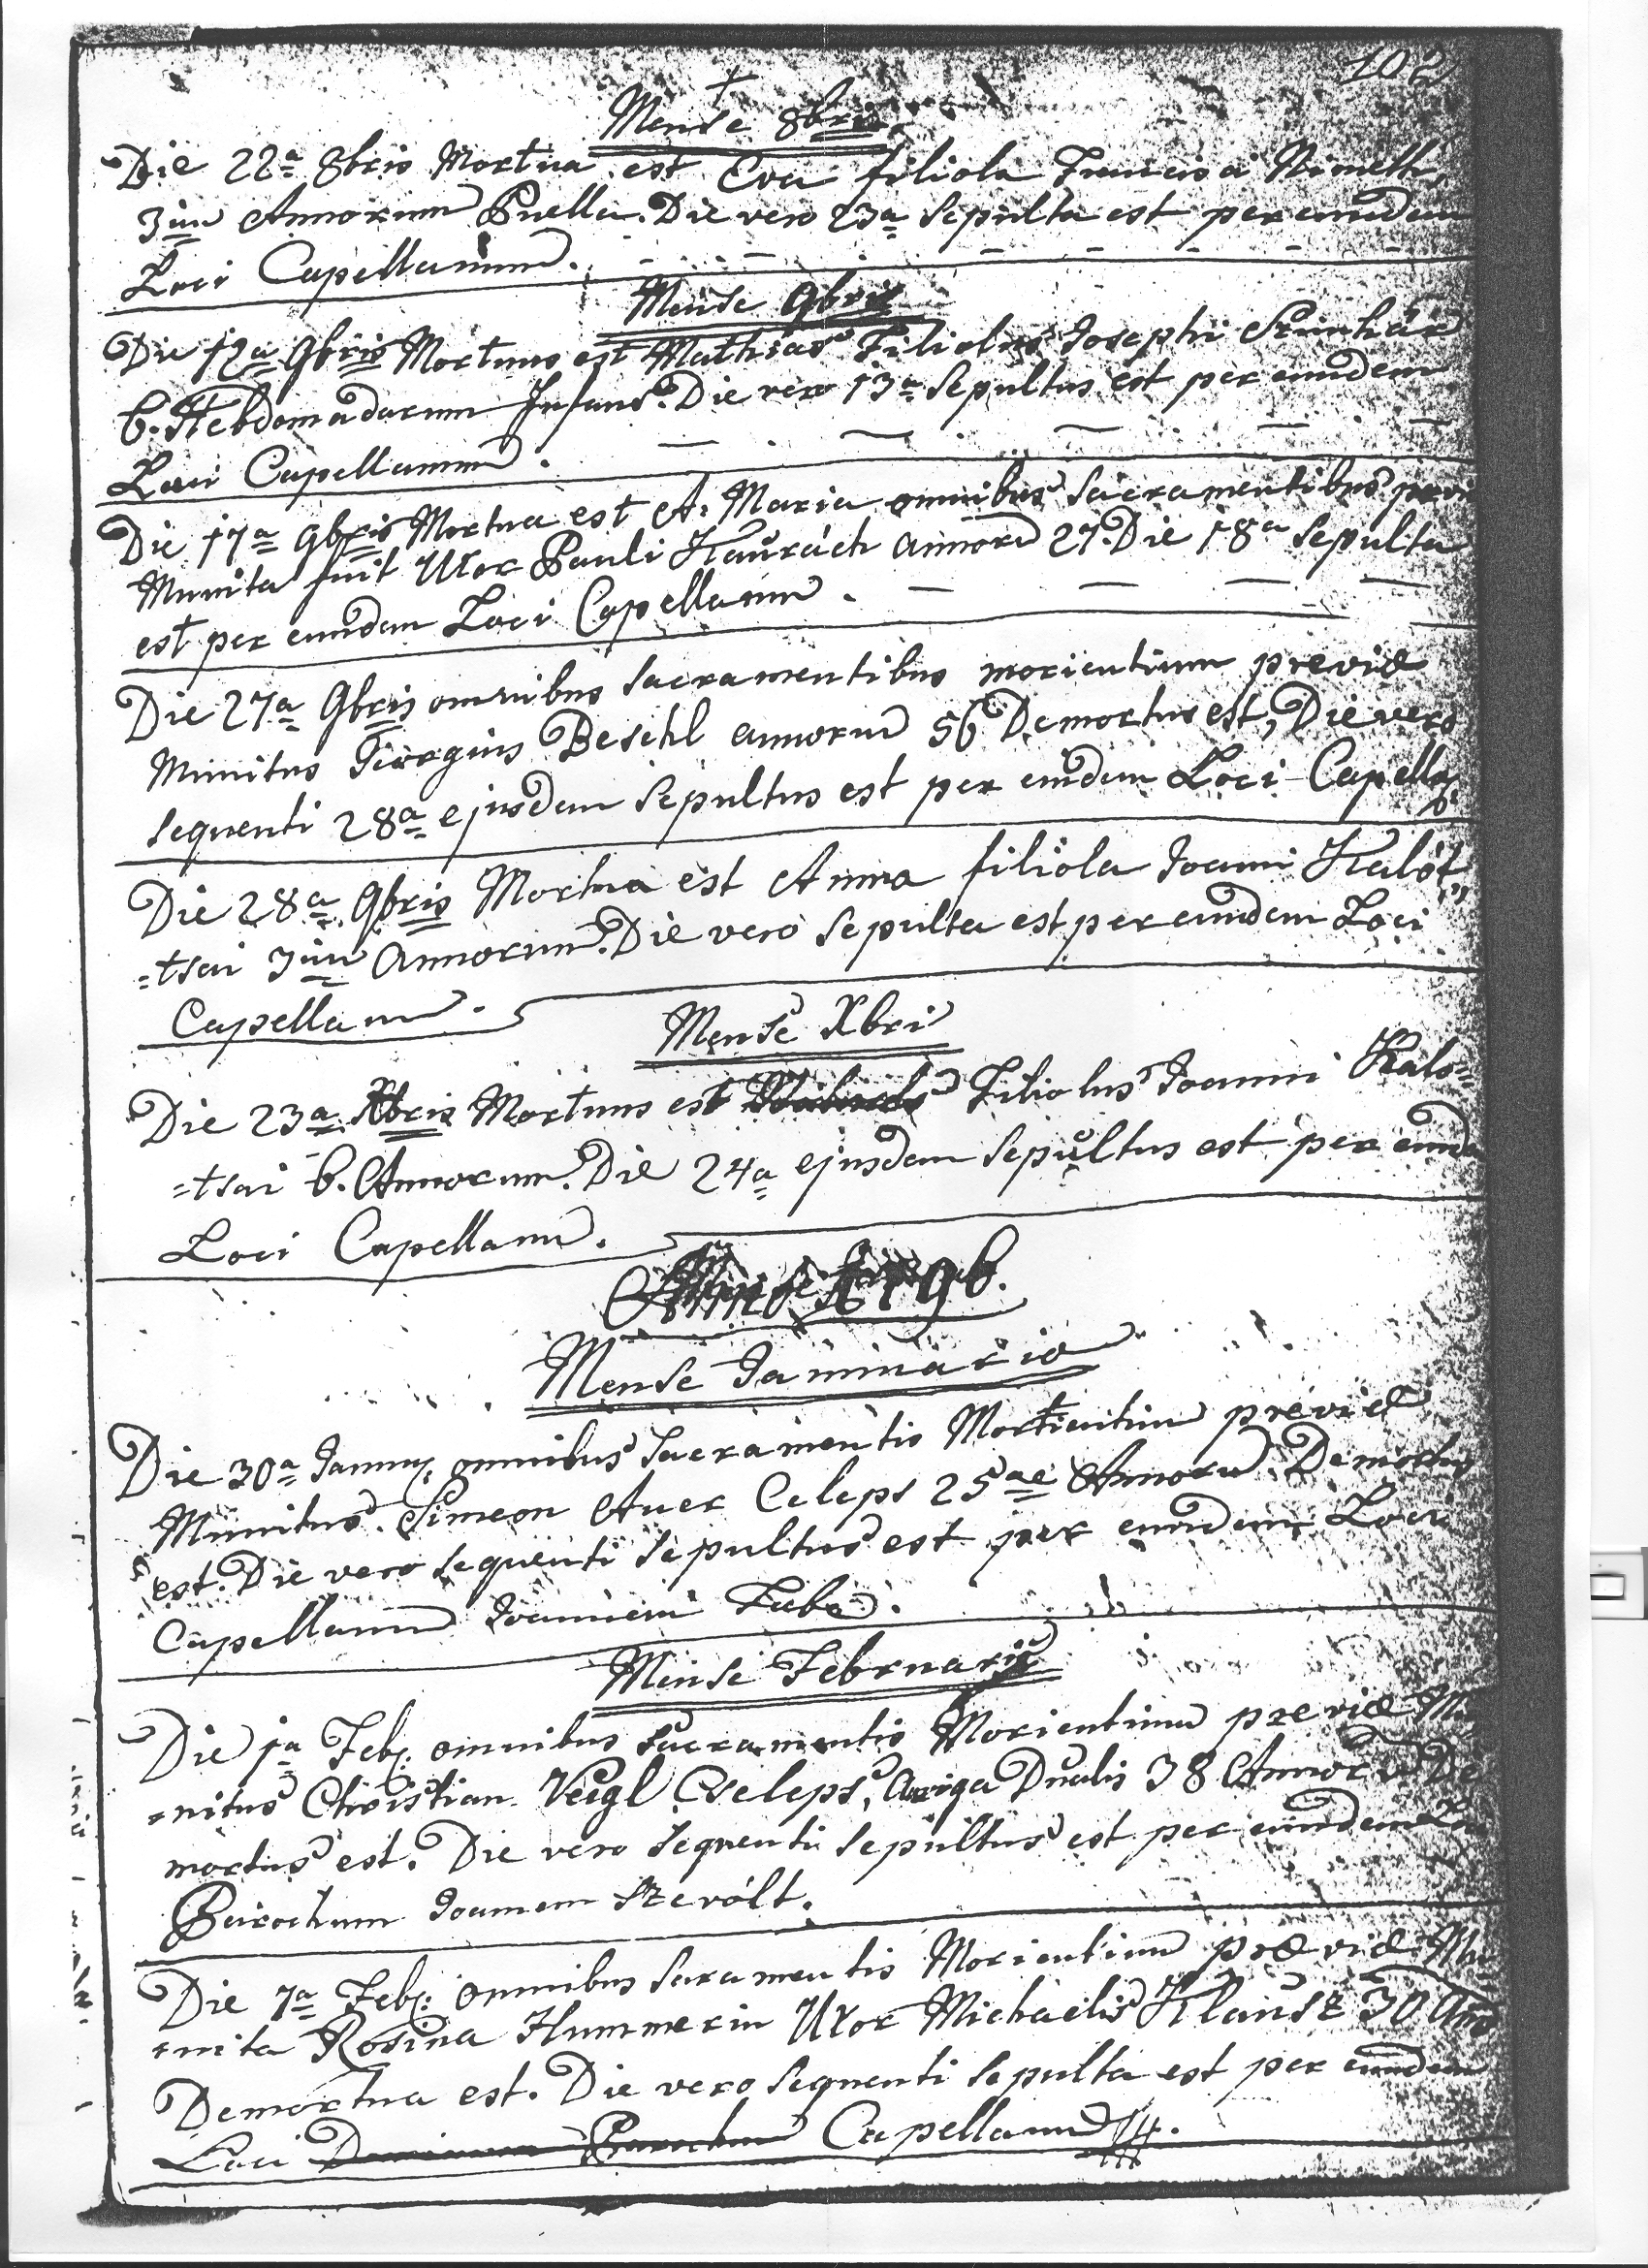 102
Mense 8bris
Die 22a 8bris Mortua est Eva filiola Francisci Nimeth
3ũm Annorum Puella. Die vero 23a Sepulta est per eundem
Loci Capellanum.
Mense 9bris
Die 12a 9bris Mortuus est Mathias Filiolus Josephi
6. Hebdomadarum Infans. Die vero 13a Sepultus est per eundem
Loci Capellanum.
Die 17a 9bris Mortua est A. Maria omnibus Sacramentibus
Munita fuit Uxor Pauli Kaurách annorũ 27. Die 18a Sepulta
est per eundem Loci Capellanum.
Die 27a 9bris omnibus Sacramentibus morientium previe
Munitus Georgius Beschl annorum 56 Demortus est, Die vero
sequenti 28a ejusdem Sepultus est per eũdem Loci Capella
Die 28a 9bris Mortua est Anna filiola Joanni Kalót,,
=tsai 3ũm Annorum. Die vero Sepulta est per eundem Loci
Capellanũ.
Mense Xbri
Die 23a Xbris Mortuus est Filiolus Joanni Kalo=
=tsai 6. Annorum. Die 24a ejusdem Sepultus est per eund
Loci Capellanũ.
Mense Januario
Die 30a Januaŗ. omnibus Sacramentis Mortientiũ previe
Munitus. Simeon Auer Celeps 25ae Annorũ. Demortus
est. Die vero sequenti Sepultus est per eundem Loci
Capellanũ Joannem
Mense Februarii
Die 1a Feb. omnibus Sacramentis Morientium previe Mu
=nitus Christian Veigl Celeps, Auriga Dualis 38 Annorũ De
mortus est. Die vero sequenti Sepultus est per eundem
Parochum Joannem Szevólt.
Die 7a Feb. omnibus Saramentis Morientium prævie Mu
=nita Rosina Hummerin Uxor Michaelis Klausz 30 Ann
Demortua est. Die vero sequenti Sepulta est per eundem
Loci Dominum Parochum Capellanũ